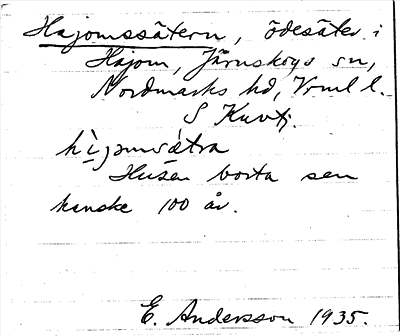 Hajomssätern, ödesäter i
Hajom, Järnskogs sn,
Nordmarks hd, Vrml l.
S Kuvtj.
hi̖jomsätra
Husen borta sen
kanske 100 år.
E. Andersson 1935.